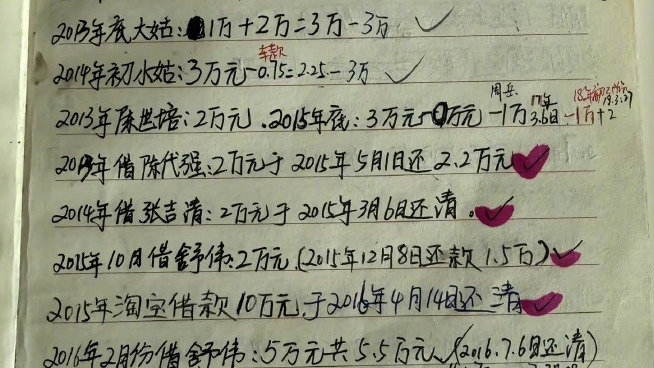 2013年底大姑:1万+2万=3万-3万
车款
2014年初小姑:3万元-0.75=2.25-3万
2013年陈世培:2万元.2015年底:3万元-0万元-1万 3.6日 -1万+2
17年
18年
19.3.27
2013年借陈代强:2万元于2015年5月1日还2.2万元
2014年借张吉清:2万元于2015年3月6日还清。
2015年10月借舒伟:2万元.(2015年12月8日还款1.5万)
2015年淘宝借款10万元于2016年4月14日还清
2016年2月份借舒伟:5万元共5.5万元(2016.7.6日还清)